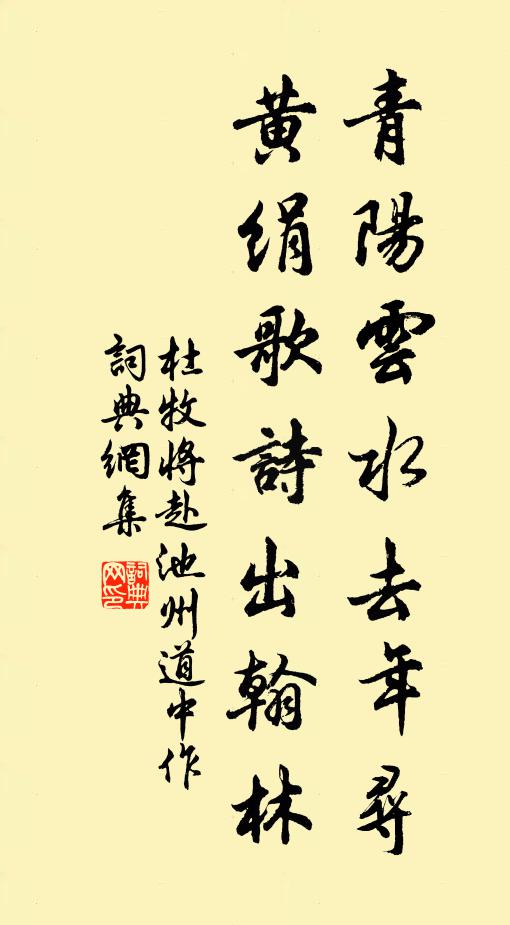 青陽雲水去年尋
黃絹歌詩出翰林
杜牧將赴池州道中作
詞典網集
詞典
网印